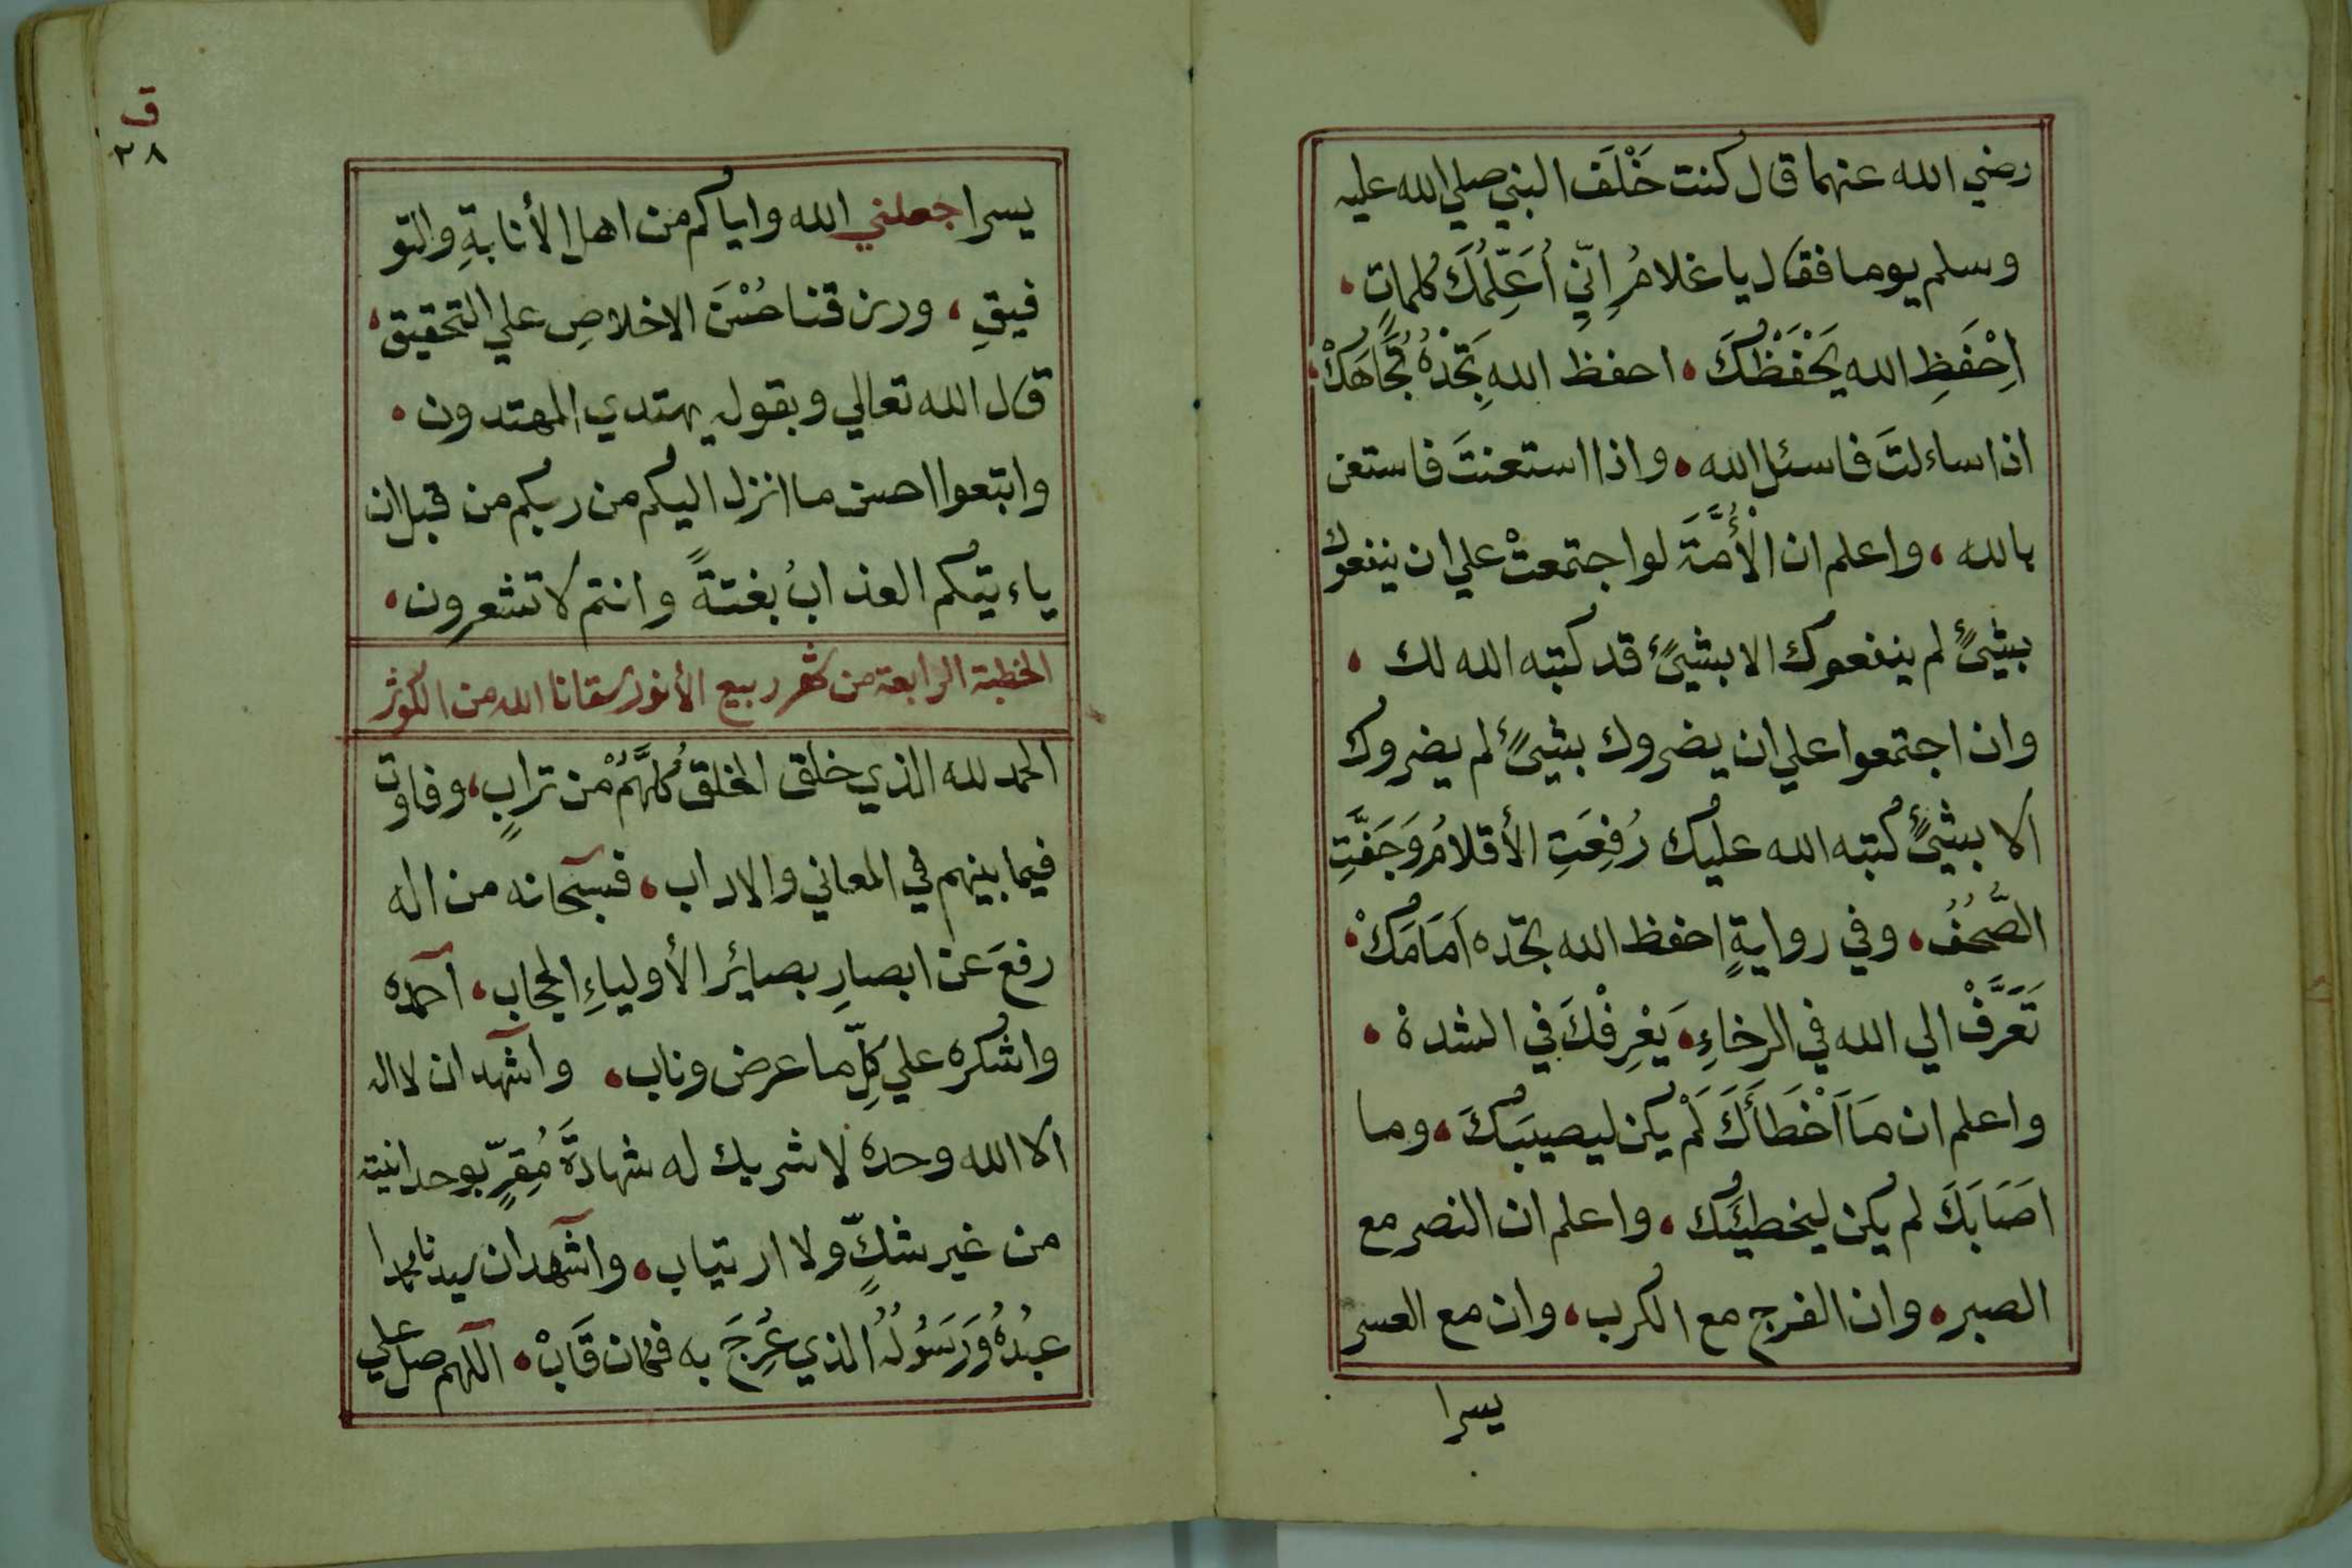 رضي الله عنهما قال كنت خَلْفَ النبي صلي الله عليه
وسلم يوما فقال يا غلامُ اِنّيِ اُعَلِّمُكَ كلماتٍ،
اِحْفَظِ الله يَحْفَظْكَ، احفظ اللهِ تَجِدْهُ تُجَاهَكْ،
اذا ساءلتَ فاسئل الله، واذا استعنتَ فاستعن
بالله، واعلم ان الأُمَّةَ لو اجتمعتْ علي ان ينفعوك
بشيئٍ لم ينفعوك الا بشيئٍ قد كتبه الله لك،
وان اجتمعوا علي ان يضروك بشيئٍ لم يضروك
الا بشيئٍ كتبه الله عليك رُفِعَتِ الأقلامُ وَجَفَّتِ
الصُّحُفُ، وفي روايةٍ احفظ الله تجده اَمَامَكْ،
تَعَرَّفْ الي الله في الرخاءِ، يَعْرِفْكَ في الشدة،
واعلم ان مَا اَخْطَأَكَ لَمْ يكن ليصيبَكَ، وما
اَصَابَكَ لم يكن ليخطيئَك، واعلم ان النصر مع
الصبر، وان الفرج مع الكرب، وان مع العسر
يسرا
ق
٢٨
يسرا جعلني الله واياكم من اهل الأنابةِ والتو
فيقِ، ورزقنا حُسْنَ الاخلاصِ علي التحقيق،
قال الله تعالي وبقوله يهتدي المهتدون،
واتبعوا احسن ما انزل اليكم من ربكم من قبل ان
ياءتيكم العذابُ بغتةً وانتم لا تشعرون،
الخطبة الرابعة من شهر ربيع الأنور سقانا الله من الكوثر
الحمد لله الذي خلق الخلق كُلَّهُمْ من ترابٍ، وفاوت
فيما بينهم في المعاني والاداب، فسبحانه من اله
رفعَ عن ابصارِ بصائر الأولياءِ الحجاب، احمده
واشكره علي كلِّ ما عرض وناب، واشهد ان لا اله
الا الله وحده لا شريك له شهادةَ مُقِرٍّ بوحدانيته
من غير شكٍّ ولا ارتياب، واشهد ان سيدنا محمدا
عبدُهُ وَرَسُولُهُ الذي عُرِجَ به فكان قَابْ، اللهم صل علي